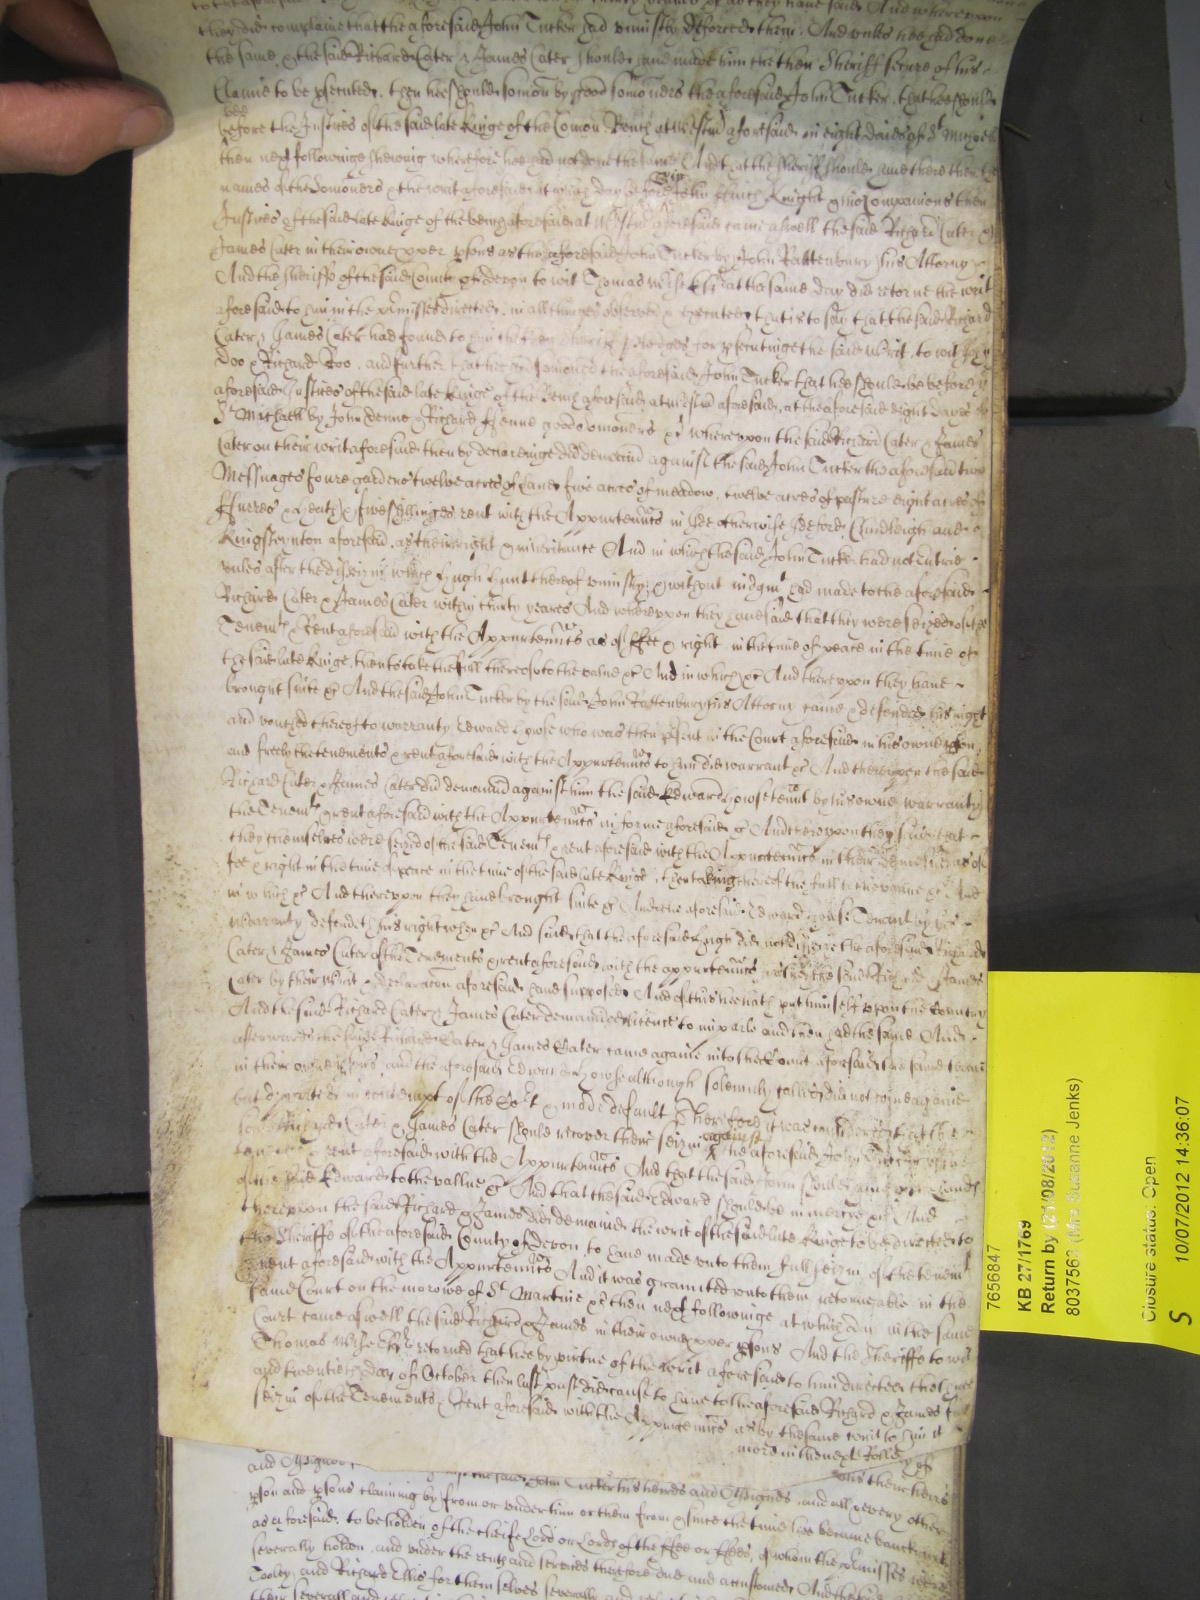 they did complaine that the aforesaid John Tucker had uniustly deforced them. And unles hee had done
the same & the said Richard Cater & James Cater should have made him the then Sheriff secure of his
Clayme to be psecuted, then hee should somon by good somoners the aforesaid John Tucker, that hee should
bee
before the Justices of the said late Kinge of the Comon Bench at Westm aforesaid in eight daies of St Michael
then next followinge shewing wherefore hee had not done the same And that the Sheriff should have there then the
names of the Somoners & the writ aforesaid at which day before John Finch Knight & his Companions then
Justices of the said late Kinge of the bench aforesaid at Westm aforesaid came aswell the said Richard Cater &
James Cater in their owne pper psons as the aforesaid John Tucker by John Rattenbury his Attorny
And the Sheriffe of the said County of Devon to wit Thomas Wise Esqr at the same day did retorne the writ
aforesaid to him in the pmisses directed, in all thinges observed & executed, that is to say that the said Richard
Cater & James Cater had found to him the then Sheriff pledges for psecutinge the said Writ, to wit John
Doo & Richard Roo, and further that hee had somoned the aforesaid John Tucker that hee should be before ye
aforesaid Justices of the said late Kinge of the Bench aforesaid at Westm aforesaid, at the aforesaid eight daies of
St Michaell by John Denne & Richard Fenne good somoners &c whereupon the said Richard Cater & James
Cater on their writ aforesaid then by declaringe did demaund against the said John Tucker the aforesaid two
Messuages foure gardens twelve acres of land five acres of meadow, twelve acres of pasture eight acres of
Furzes & heath & five shillinges rent with the Appurtennces in Ide otherwise Ideford Chudleigh and
Kingsteynton aforesaid, as their right & inheritance And in which the said John Tucker had not entrie
unles after the disseizin which Hugh Hunt thereof uniustly & without iudgmt had made to the aforesaid
Richard Cater & James Cater within thirty yeares And whereupon they have said that they were seized of the
Tenemts & Rent aforesaid with the Appurtennces as of ffee & right in the time of peace in the time of
the said late Kinge, thence to take the full thereof to the value &c And in which &c And thereupon they have
brought suite &c And the said John Tucker by the said John Rattenbury his Attorny came & defended his right
and vouched thereof to warranty Edward Howse who was then psent in the Court aforesaid in his owne pson
and freely the tenements & rent aforesaid with the Appurtennces to him did warrant &c And thereupon the said
Richard Cater & James Cater did demaund against him the said Edward Howse tennt by his owne warranty
the Tenemts & rent aforesaid with the Appurtennces in forme aforesaid &c And thereupon they said that
they themselves were seized of the said Tenemts & rent aforesaid with the Appurtennces in their demesne as of
fee & right in the time of peace in the time of the said late Kinge, then taking thereof the full to the value &c And
in which &c And thereupon they have brought suite &c And the aforesaid Edward Howse Tenant by his
warranty defendeth his right when &c And said that the aforesaid Hugh did not disseize the aforesaid Richard
Cater & James Cater of the Tenements & rent aforesaid with the appurtennces as they the said Richard & James
Cater by their Writ & declaracon aforesaid have supposed And of this hee hath put himself upon the Country
And the said Richard Cater & James Cater demaunded licence to imparle and then had the same And
afterwards the said Richard Cater & James Cater came againe into the Court aforesaid the same terme
in their owne psons, and the aforesaid Edward Howse although solemnly called did not come againe
but departed in contempt of the Cort & made default Therefore it was considered that the
said Richard Cater & James Cater should recover their seizin against the aforesaid John Tucker of the
tenemts & rent aforesaid with the Appurtennces And that the said John should have of the lands
of the said Edward to the vallue &c And that the said Edward should be in mercye &c And
thereupon the said Richard & James did demaund the writ of the said late Kinge to be directed to
the Sheriffe of the aforesaid County of Devon, to have made unto them full seizin of the tenemts
& rent aforesaid with the Appurtennces And it was graunted unto them retorneable in the
same Court on the morowe of St Martine &c then next followinge at which day in the same
Court came aswell the said Richard & James in their owne pper psons And the Sheriffe to wit
Thomas Wise Esqr retorned that hee by virtue of the writ aforesaid to him directed the three
and twentieth day of October then last past did cause to have to the aforesaid Richard & James full
seizin of the Tenements & Rent aforesaid with the Appurtennces as by the same writ to him it
more in the next Rolle
and Assignes the said John Tucker his heires and Assignes, and all & every other
pson and psons claiming by from or under him or them from & since the time hee became
as aforesaid, to be holden of the cheife Lord or Lords of the ffee or ffees, of whom the pmisses were
severally holden, and under the rents and services therefore due and accustomed And the said
Tooley, and Richard Ellis for themselves severally and
7656847
KB 27/1769
Return by (21/08/2012)
8037563 (Mrs Susanne Jenks)
Closure status: Open
S 10/07/2012 14:36:07